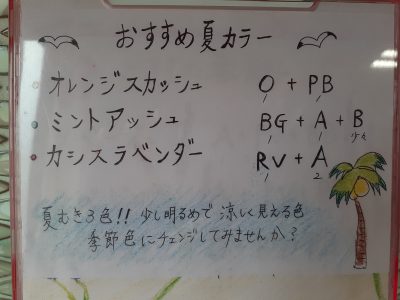 おすすめ夏カラー
・オレンジスカッシュ O + PB
・ミントアッシュ BG + A + B
少々
・カシスラベンダー RV + A
2
夏むき3色!! 少し明るめで 涼しく見える色
季節色にチェンジしてみませんか?